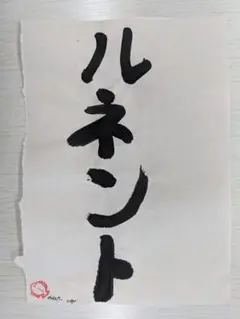 ルネント